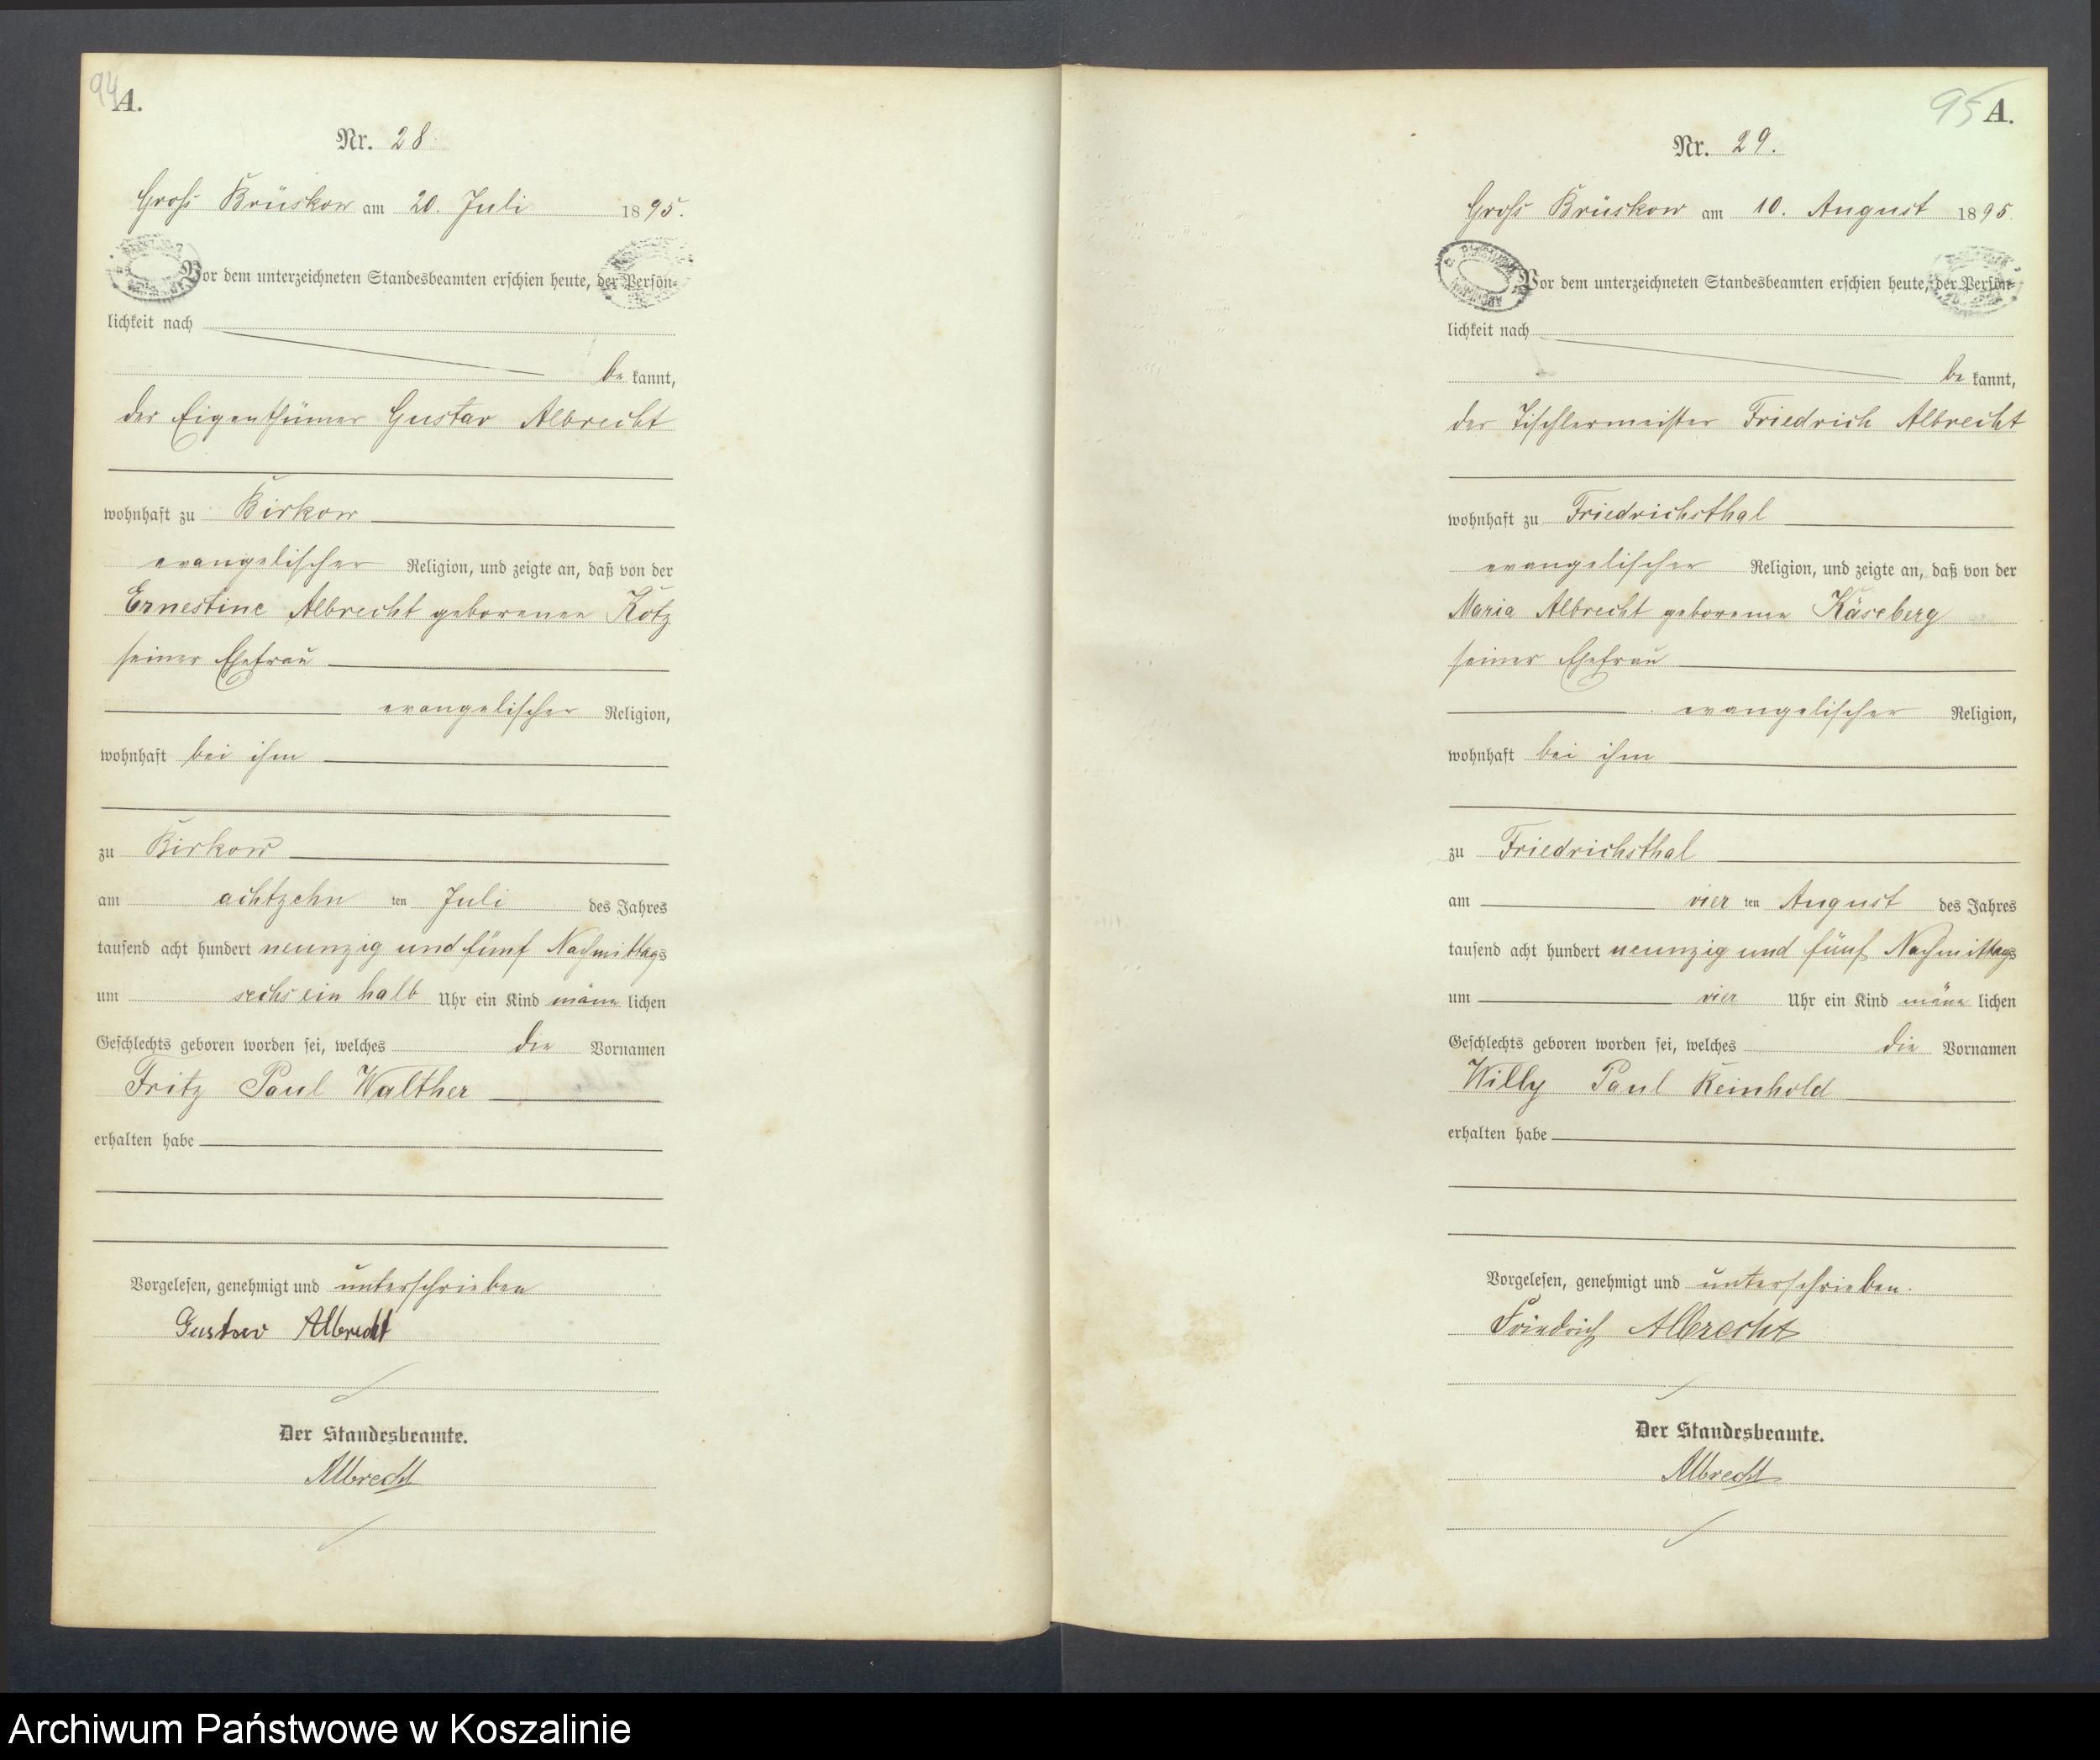 94
A.
Nr. 28
Groß Brüskow am 20. Juli 1895.
Vor dem unterzeichneten Standesbeamten erschien heute, der Persön-
lichkeit nach
be kannt,
der Eigenthümer Gustav Albrecht
wohnhaft zu Birkow
evangelischer Religion, und zeigte an, daß von der
Ernestine Albrecht geborenen Kotz
seiner Ehefrau
evangelischer Religion,
wohnhaft bei ihm
zu Birkow
am achtzehn ten Juli des Jahres
tausend acht hundert neunzig und fünf Nachmittags
um sechs ein halb Uhr ein Kind männ lichen
Geschlechts geboren worden sei, welches die Vornamen
Fritz Paul Walther
erhalten habe
Vorgelesen, genehmigt und unterschrieben
Gustav Albrecht
Der Standesbeamte.
Albrecht
95 A.
Nr. 29.
Groß Brüskow am 10. August 1895
Vor dem unterzeichneten Standesbeamten erschien heute, der Persön-
lichkeit nach
be kannt,
der Tischlermeister Friedrich Albrecht
wohnhaft zu Friedrichsthal
evangelischer Religion, und zeigte an, daß von der
Maria Albrecht geborenen Käseberg
seiner Ehefrau
evangelischer Religion,
wohnhaft bei ihm
zu Friedrichsthal
am vier ten August des Jahres
tausend acht hundert neunzig und fünf Nachmittags
um vier Uhr ein Kind männ lichen
Geschlechts geboren worden sei, welches die Vornamen
Willy Paul Reinhold
erhalten habe
Vorgelesen, genehmigt und unterschrieben.
Friedrich Albrecht
Der Standesbeamte.
Albrecht
Archiwum Państwowe w Koszalinie